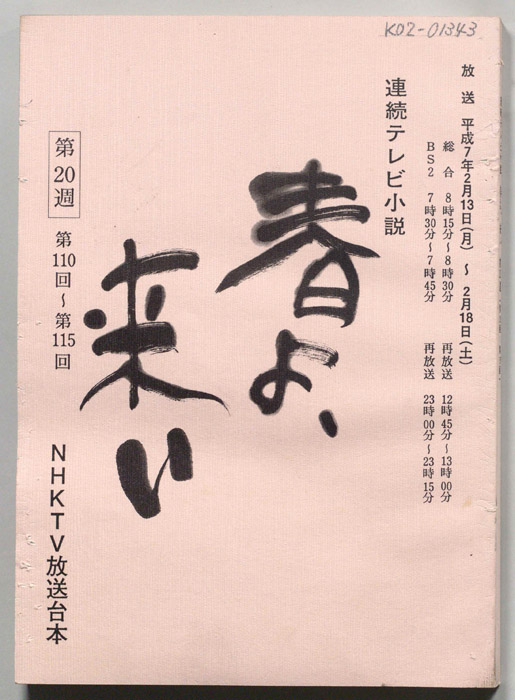 K02-01343
放送 平成7年2月13日(月) ~ 2月18日(土)
総合 8時15分~8時30分 再放送 12時45分~13時00分
BS2 7時30分~7時45分 再放送 23時00分~23時15分
連続テレビ小説
春よ、
来い
第20週 第110回~第115回
NHKTV放送台本